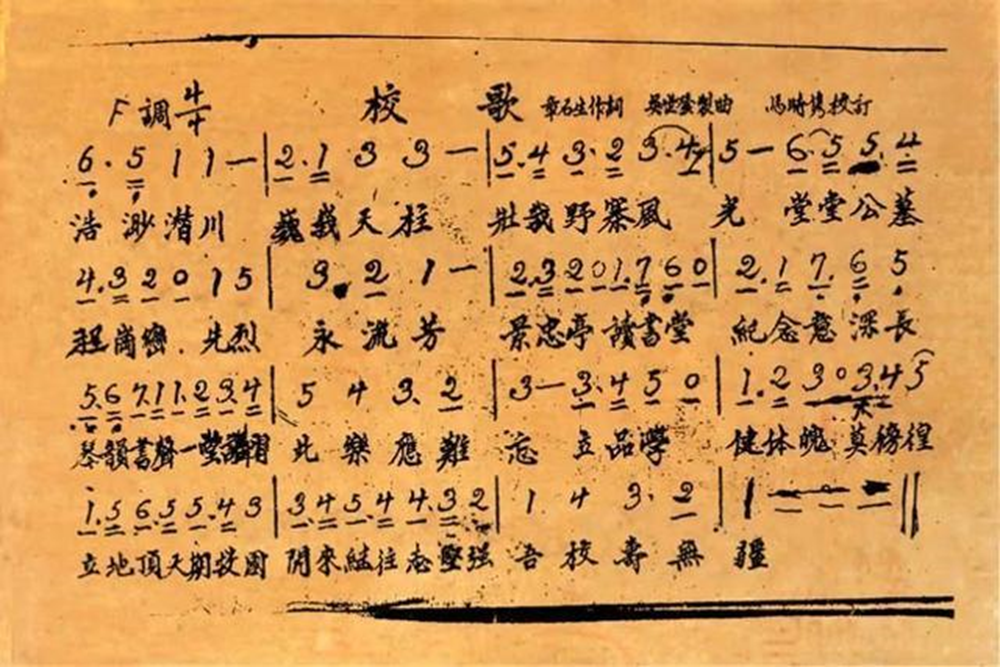 F調 4/4 校 歌 章石生作詞 吳世瑩製曲 馮時雋校訂
6. 5 1 1 — | 2. 1 3 3 — | 5. 4 3. 2 3. 4 | 5 — 6. 5 5. 4
浩渺潛川 巍峩天柱 壯哉野寨風 光 堂堂公墓
4. 3 2 0 1 5 | 3. 2 1 — | 2. 3 2 0 1. 7 6 0 | 2. 1 7. 6 5
崗巒 先烈 永流芳 景忠亭讀書堂 紀念意深長
5. 6 7. 1 1. 2 3. 4 | 5 4 3. 2 | 3 — 3. 4 5 0 | 1. 2 3 0 3. 4 5
琴韻書聲一堂 此樂應難 忘 立品學 健体魄莫徬徨
1. 5 6. 5 5. 4 3 | 3. 4 5. 4 4. 3 2 | 1 4 3. 2 | 1 — 0 — ||
立地頂天期救國 開來繼往志堅强 吾校壽無 疆